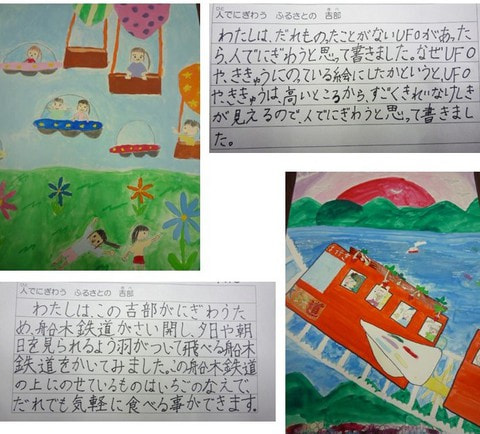 人でにぎわう　ふるさとの　吉部
わたしは、だれものったことがないUFOがあった
ら、人でにぎわうと思って書きました。なぜUFO
や、ききゅうにのっている絵にしたかというと、UFO
や、ききゅうは、高いところから、すごくきれいなけしき
が見えるので、人でにぎわうと思って書きまし
た。
人でにぎわう　ふるさとの　吉部
わたしは、この吉部がにぎわうた
め、船木鉄道がさい開し、夕日や朝
日を見られるよう羽がついて飛べる船木
鉄道をかいてみました。この船木鉄道
の上にのせているものはいちごのなえで、
だれでも気軽に食べる事ができます。